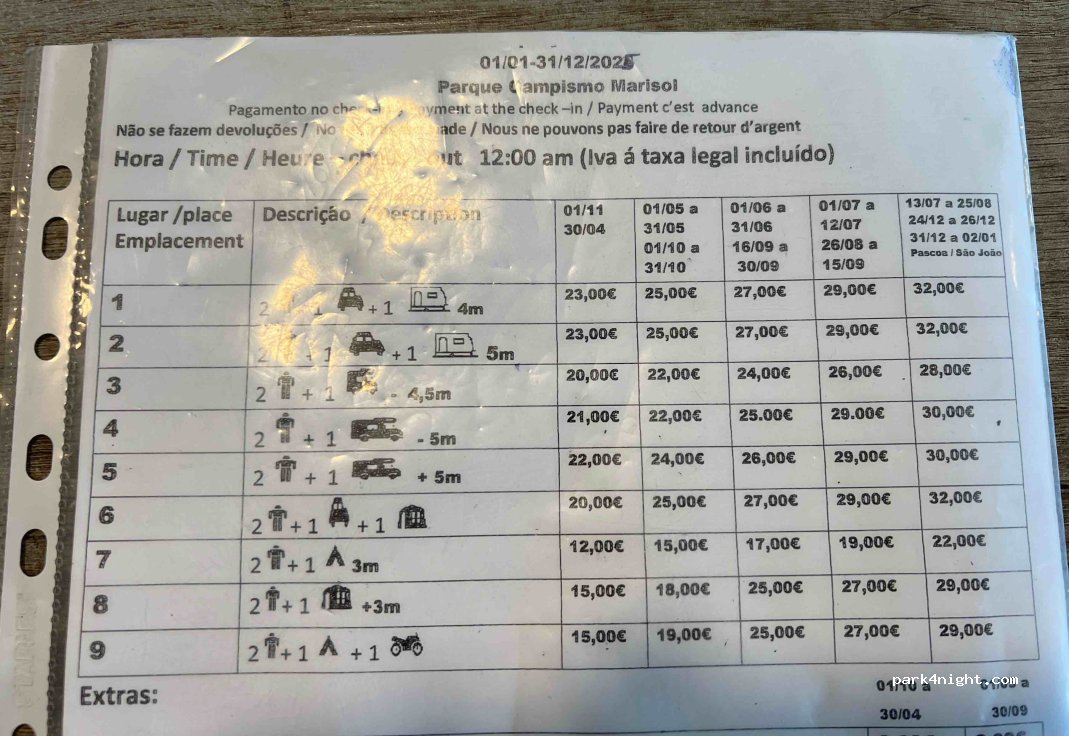 01/01-31/12/2025
Parque Campismo Marisol
Pagamento no check-in / Payment at the check –in / Payment c’est advance
Não se fazem devoluções / No made / Nous ne pouvons pas faire de retour d’argent
Hora / Time / Heure - out 12:00 am (Iva á taxa legal incluído)
Lugar /place
Emplacement
Descrição / Description
01/11
30/04
01/05 a
31/05
01/10 a
31/10
01/06 a
31/06
16/09 a
30/09
01/07 a
12/07
26/08 a
15/09
13/07 a 25/08
24/12 a 26/12
31/12 a 02/01
Pascoa / São João
1 2 1 + 1 4m 23,00€ 25,00€ 27,00€ 29,00€ 32,00€
2 2 + 1 + 1 5m 23,00€ 25,00€ 27,00€ 29,00€ 32,00€
3 2 + 1 - 4,5m 20,00€ 22,00€ 24,00€ 26,00€ 28,00€
4 2 + 1 - 5m 21,00€ 22,00€ 25.00€ 29.00€ 30,00€
5 2 + 1 + 5m 22,00€ 24,00€ 26,00€ 29,00€ 30,00€
6 2 + 1 + 1 20,00€ 25,00€ 27,00€ 29,00€ 32,00€
7 2 + 1 3m 12,00€ 15,00€ 17,00€ 19,00€ 22,00€
8 2 + 1 +3m 15,00€ 18,00€ 25,00€ 27,00€ 29,00€
9 2 + 1 + 1 15,00€ 19,00€ 25,00€ 27,00€ 29,00€
Extras:
01/10 a
30/04
30/09
park4night.com